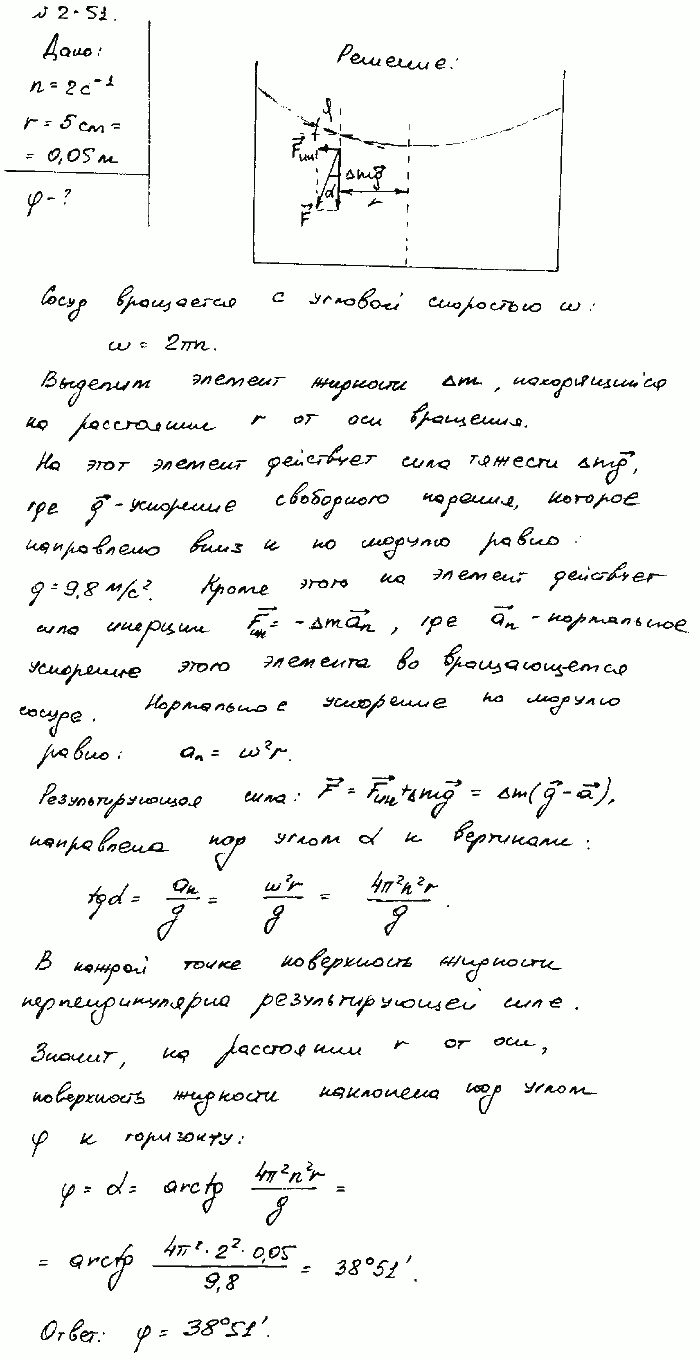 № 2-51.
Дано:
n = 2 с⁻¹
r = 5 см =
= 0,05 м
φ - ?
Решение:
φ
F⃗ин
Δmg⃗
α
r
F⃗
Сосуд вращается с угловой скоростью ω:
ω = 2πn.
Выделим элемент жидкости Δm, находящийся
на расстоянии r от оси вращения.
На этот элемент действует сила тяжести Δmg⃗,
где g⃗ - ускорение свободного падения, которое
направлено вниз и по модулю равно:
g = 9,8 м/с². Кроме этого на элемент действует
сила инерции F⃗ин = -Δma⃗n, где a⃗n - нормальное
ускорение этого элемента во вращающемся
сосуде. Нормальное ускорение по модулю
равно: an = ω²r.
Результирующая сила: F⃗ = F⃗ин + Δmg⃗ = Δm(g⃗ - a⃗),
направлена под углом α к вертикали:
tgα = an/g = ω²r/g = 4π²n²r/g.
В каждой точке поверхность жидкости
перпендикулярна результирующей силе.
Значит, на расстоянии r от оси,
поверхность жидкости наклонена под углом
φ к горизонту:
φ = α = arctg 4π²n²r/g =
= arctg 4π²·2²·0,05/9,8 = 38°51′.
Ответ: φ = 38°51′.